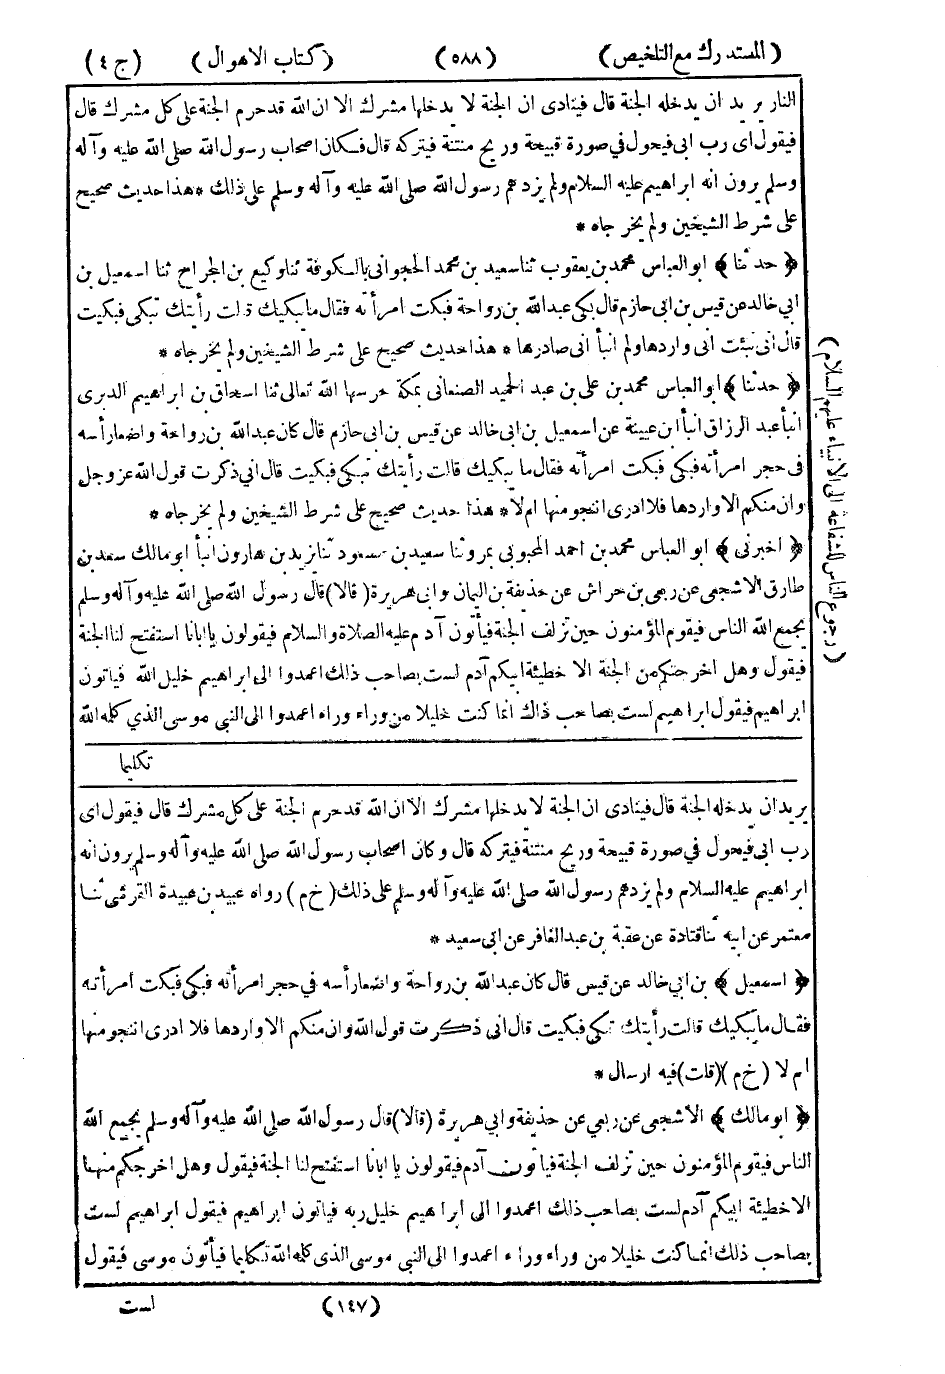 (المستدرك مع التلخيص) (٥٨٨) (كتاب الاهوال) (ج ٤)
النار يريد ان يدخله الجنة قال فينادى ان الجنة لا يدخلها مشرك الا ان الله قد حرم الجنة على كل مشرك قال
فيقول اى رب ابى فيحول فى صورة قبيحة وريح منتنة فيتركه قال فكان اصحاب رسول الله صلى الله عليه وآله
وسلم يرون انه ابراهيم عليه السلام ولم يزدهم رسول الله صلى الله عليه وآله وسلم على ذلك * هذا حديث صحيح
على شرط الشيخين ولم يخرجاه *
﴿ حدثنا ﴾ ابو العباس محمد بن يعقوب ثنا سعيد بن محمد الحجوانى بالكوفة ثنا وكيع بن الجراح ثنا اسمعيل بن
ابي خالد عن قيس بن ابى حازم قال بكى عبد الله بن رواحة فبكت امرأته فقال ما يبكيك قالت رأيتك تبكى فبكيت
قال انى نبئت انى واردها ولم انبأ انى صادرها * هذا حديث صحيح على شرط الشيخين ولم يخرجاه *
﴿ حدثنا ﴾ ابو العباس محمد بن على بن عبد الحميد الصنعانى بمكة حرسها الله تعالى ثنا اسحاق بن ابراهيم الدبرى
انبأ عبد الرزاق انبأ ابن عيينة عن اسمعيل بن ابى خالد عن قيس بن ابى حازم قال كان عبد الله بن رواحة واضعا رأسه
فى حجر امرأته فبكى فبكت امرأته فقال ما يبكيك قالت رأيتك تبكى فبكيت قال انى ذكرت قول الله عز وجل
وان منكم الا واردها فلا ادرى اننجو منها ام لا * هذا حديث صحيح على شرط الشيخين ولم يخرجاه *
﴿ اخبرنى ﴾ ابو العباس محمد بن احمد المحبوبى بمرو ثنا سعيد بن مسعود ثنا يزيد بن هارون انبأ ابو مالك سعد بن
طارق الاشجعى عن ربعى بن حراش عن حذيفة بن اليمان وابى هريرة (قالا) قال رسول الله صلى الله عليه وآله وسلم
يجمع الله الناس فيقوم المؤمنون حين تزلف الجنة فيأتون آدم عليه الصلاة والسلام فيقولون يا ابانا استفتح لنا الجنة
فيقول وهل اخرجتكم من الجنة الا خطيئة ابيكم آدم لست بصاحب ذلك اعمدوا الى ابراهيم خليل الله فياتون
ابراهيم فيقول ابراهيم لست بصاحب ذاك انما كنت خليلا من وراء وراء اعمدوا الى النبي موسى الذي كلمه الله
تكليما
(رجوع الناس للشفاعة الى الانبياء عليهم السلام)
يريد ان يدخله الجنة قال فينادى ان الجنة لا يدخلها مشرك الا ان الله قد حرم الجنة على كل مشرك قال فيقول اى
رب ابى فيحول فى صورة قبيحة وريح منتنة فيتركه قال وكان اصحاب رسول الله صلى الله عليه وآله وسلم يرون انه
ابراهيم عليه السلام ولم يزدهم رسول الله صلى الله عليه وآله وسلم على ذلك (خ م) رواه عبيد بن عبيدة القرشى ثنا
معتمر عن ابيه ثنا قتادة عن عقبة بن عبد الغافر عن ابى سعيد *
﴿ اسمعيل ﴾ بن ابي خالد عن قيس قال كان عبد الله بن رواحة واضعا رأسه في حجر امرأته فبكى فبكت امرأته
فقال ما يبكيك قالت رأيتك تبكى فبكيت قال انى ذكرت قول الله وان منكم الا واردها فلا ادرى اننجو منها
ام لا (خ م) (قلت) فيه ارسال *
﴿ ابو مالك ﴾ الاشجعى عن ربعي عن حذيفة وابي هريرة (قالا) قال رسول الله صلى الله عليه وآله وسلم يجمع الله
الناس فيقوم المؤمنون حين تزلف الجنة فياتون آدم فيقولون يا ابانا استفتح لنا الجنة فيقول وهل اخرجكم منها
الا خطيئة ابيكم آدم لست بصاحب ذلك اعمدوا الى ابراهيم خليل ربه فياتون ابراهيم فيقول ابراهيم لست
بصاحب ذلك انما كنت خليلا من وراء وراء اعمدوا الى النبي موسى الذى كلمه الله تكليما فيأتون موسى فيقول
(١٤٧) لست